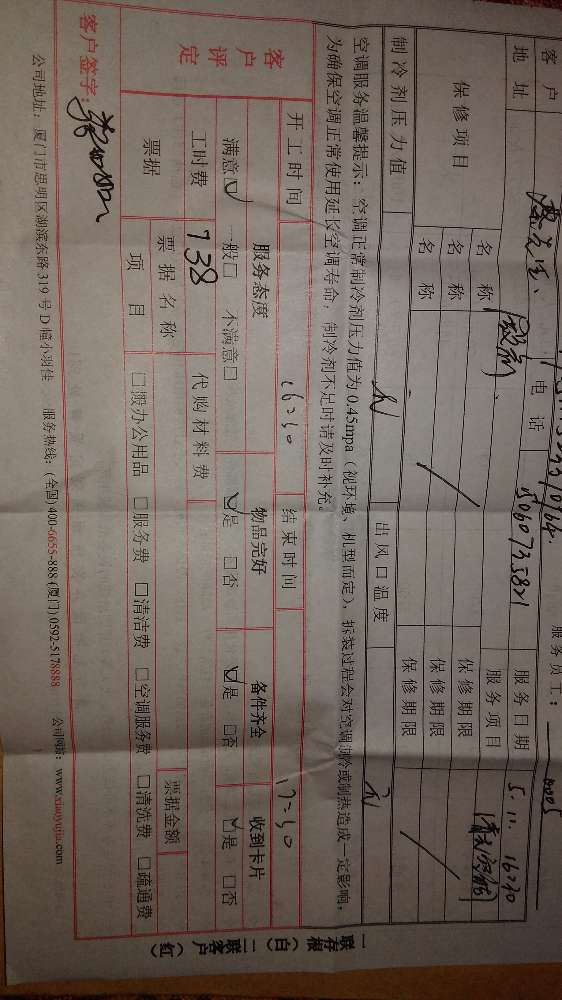 服务员工： 0005
客户 电话 15060735821 服务日期 5.11. 16:30
地址 服务项目 清洗空调
保修项目 名称 保修期限
名称 保修期限
名称 保修期限
制冷剂压力值 出风口温度
空调服务温馨提示：空调正常制冷剂压力值为0.45mpa（视环境、机型而定），拆装过程会对空调制冷或制热造成一定影响，
为确保空调正常使用延长空调寿命，制冷剂不足时请及时补充。
开工时间 16:30 结束时间 17:30
客户评定 服务态度 物品完好 备件齐全 收到卡片
满意☑ 一般□ 不满意□ ☑是 □否 ☑是 □否 ☑是 □否
工时费 138 代购材料费
票据 票据名称 票据金额
项目 □搬办公用品 □服务费 □清洁费 □空调服务费 □清洗费 □疏通费
客户签字：
公司地址：厦门市思明区湖滨东路319号D幢小羽佳 服务热线：(全国)400-6655-888 (厦门)0592-5178888 公司网站：www.xiaoyujia.com
一联存根（白）二联客户（红）